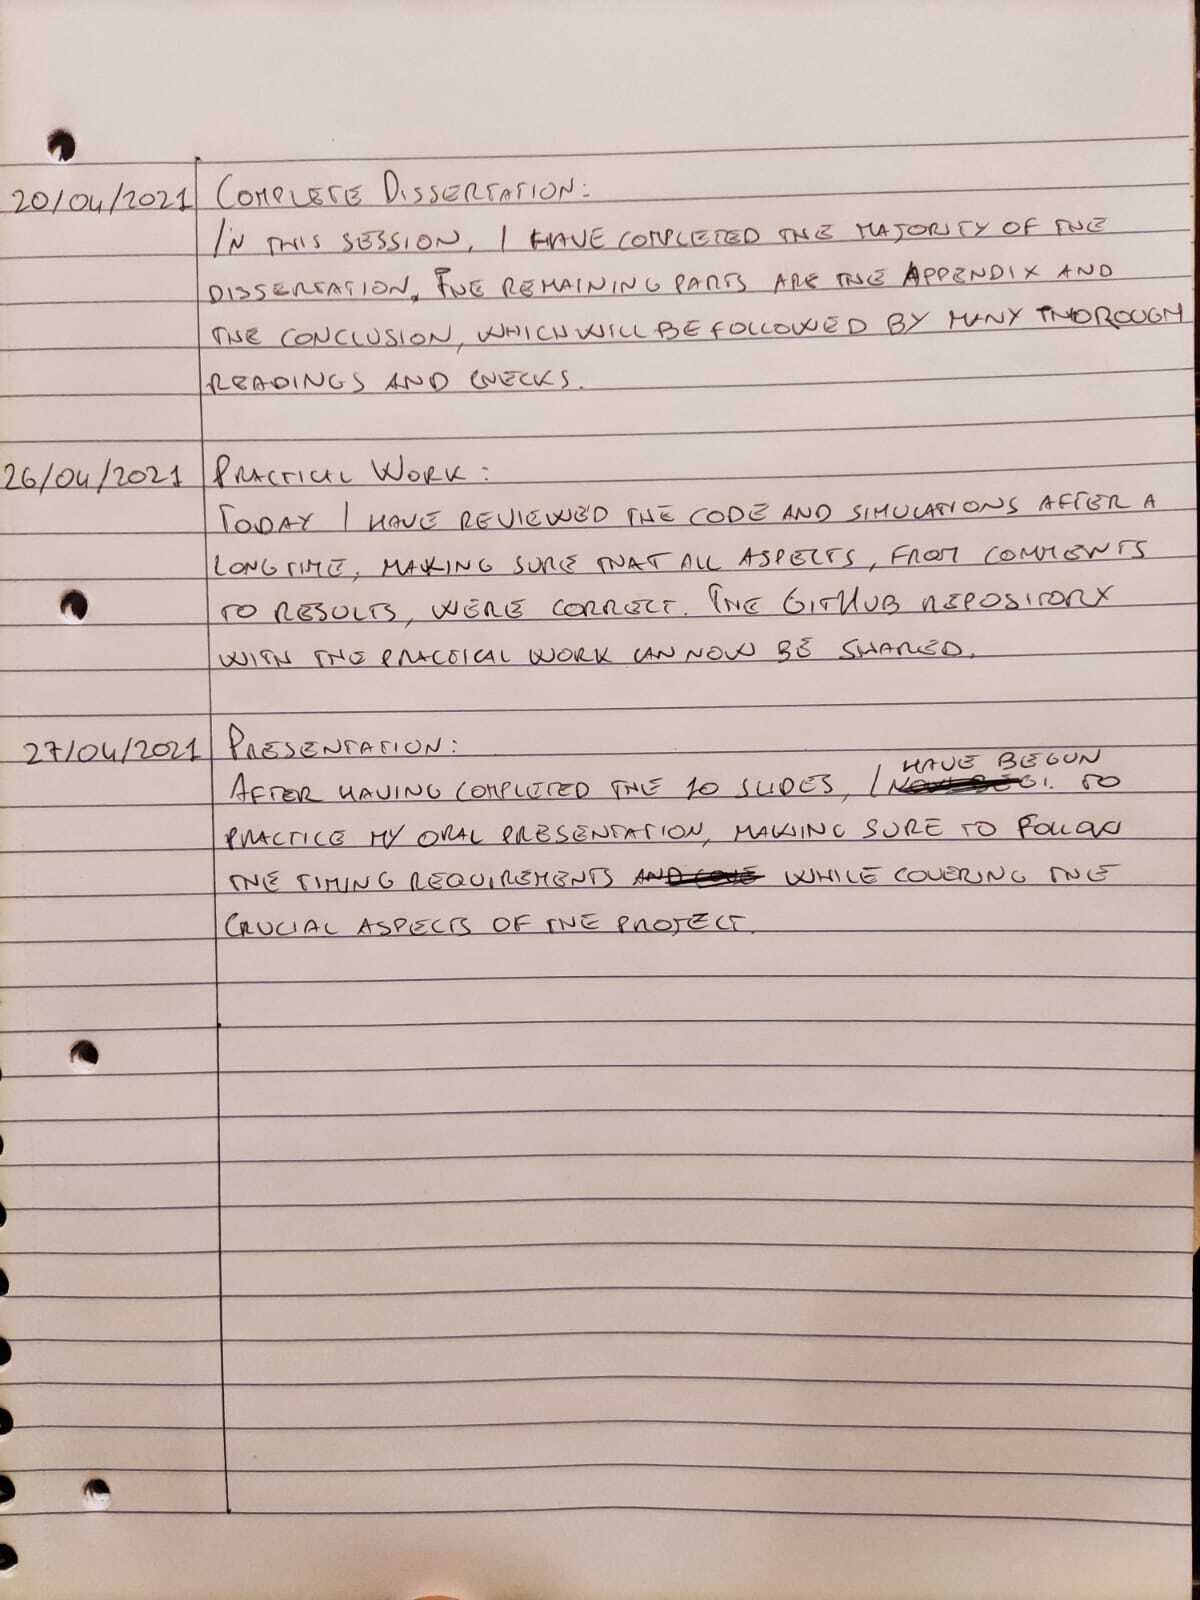 20/04/2021 COMPLETE DISSERTATION:
IN THIS SESSION, I HAVE COMPLETED THE MAJORITY OF THE
DISSERTATION. THE REMAINING PARTS ARE THE APPENDIX AND
THE CONCLUSION, WHICH WILL BE FOLLOWED BY MANY THOROUGH
READINGS AND CHECKS.
26/04/2021 PRACTICAL WORK:
TODAY I HAVE REVIEWED THE CODE AND SIMULATIONS AFTER A
LONG TIME, MAKING SURE THAT ALL ASPECTS, FROM COMMENTS
TO RESULTS, WERE CORRECT. THE GITHUB REPOSITORY
WITH THE PRACTICAL WORK CAN NOW BE SHARED.
27/04/2021 PRESENTATION:
HAVE BEGUN
AFTER HAVING COMPLETED THE 10 SLIDES, I TO
PRACTICE MY ORAL PRESENTATION, MAKING SURE TO FOLLOW
THE TIMING REQUIREMENTS WHILE COVERING THE
CRUCIAL ASPECTS OF THE PROJECT.